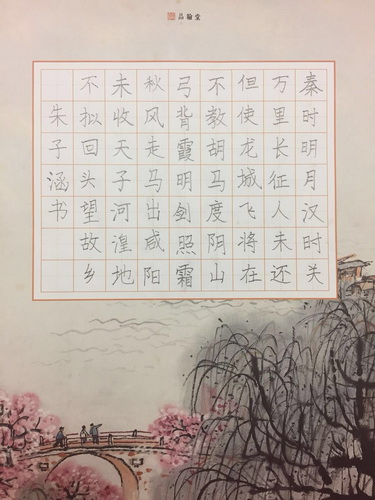 品翰堂
秦时明月汉时关
万里长征人未还
但使龙城飞将在
不教胡马度阴山
弓背霞明剑照霜
秋风走马出咸阳
未收天子河湟地
不拟回头望故乡
朱子涵书